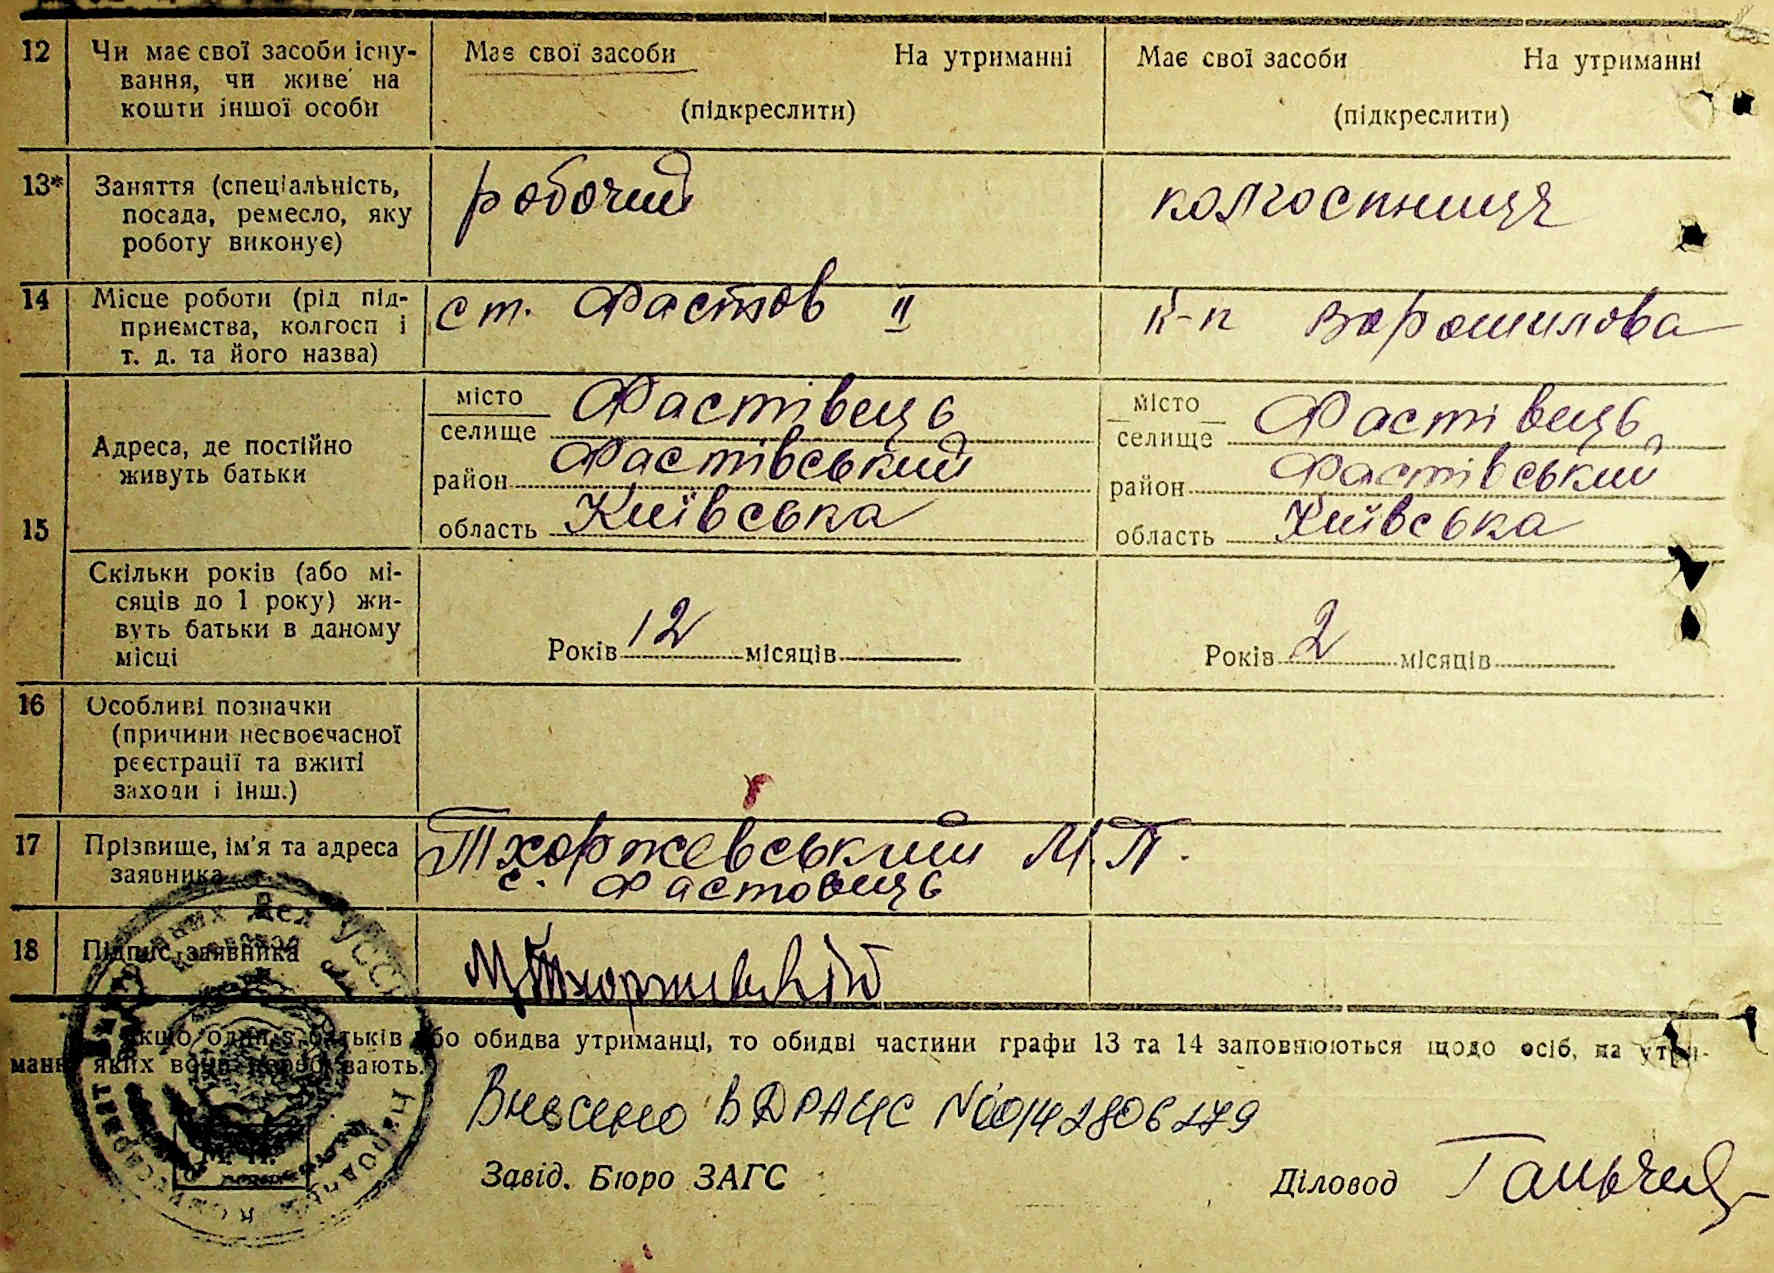 12 Чи має свої засоби існу-
вання, чи живе на
кошти іншої особи
Має свої засоби На утриманні
(підкреслити)
Має свої засоби На утриманні
(підкреслити)
13* Заняття (спеціальність,
посада, ремесло, яку
роботу виконує)
робочий
колгоспниця
14 Місце роботи (рід під-
приємства, колгосп і
т. д. та його назва)
ст. Фастов II
к-п Ворошилова
15
Адреса, де постійно
живуть батьки
місто
селище Фастівець
район Фастівський
область Київська
місто
селище Фастівець
район Фастівський
область Київська
Скільки років (або мі-
сяців до 1 року) жи-
вуть батьки в даному
місці
Років 12 місяців
Років 2 місяців
16 Особливі позначки
(причини несвоєчасної
реєстрації та вжиті
заходи і інш.)
17 Прізвище, ім'я та адреса
заявника
Тхоржевський М.П.
с. Фастовець
18 Підпис заявника
якщо один з батьків або обидва утриманці, то обидві частини графи 13 та 14 заповнюються щодо осіб, на утри-
манні яких вони перебувають.
Внесено в ДРАЦС №00142806279
Завід. Бюро ЗАГС
Діловод
Дел УССР
Народный